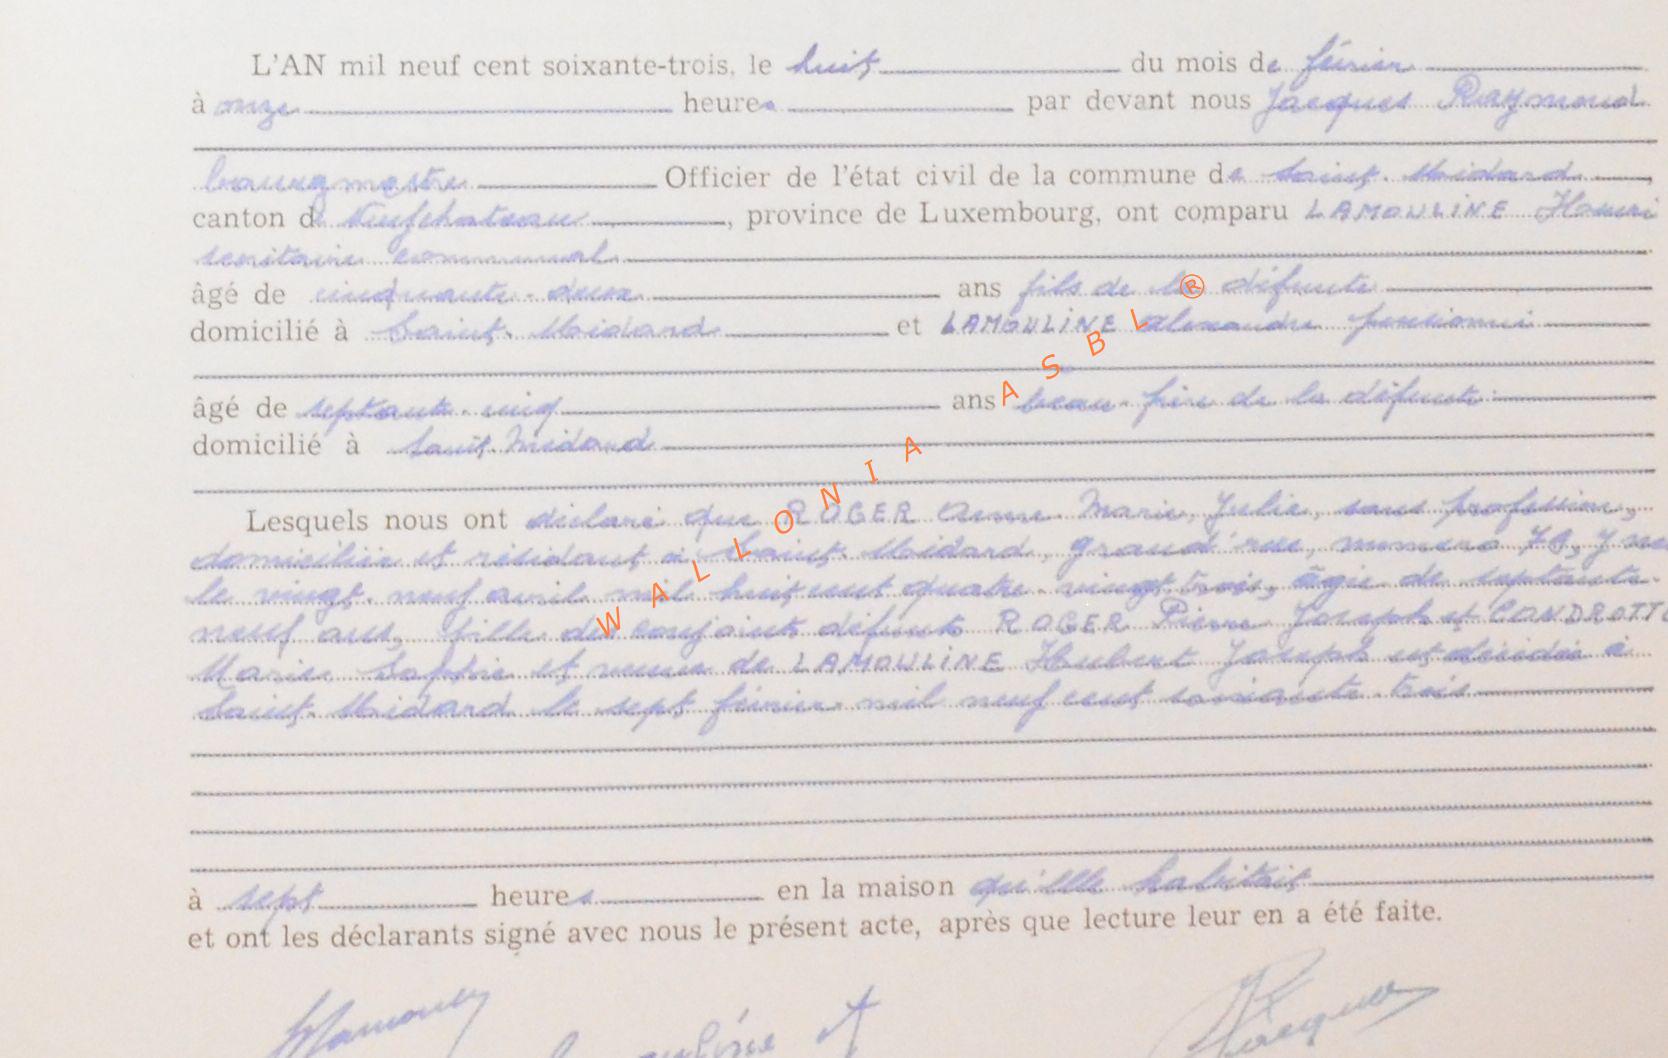 L'AN mil neuf cent soixante-trois, le huit du mois de février
à onze heures par devant nous Jacques Raymond
bourgmestre Officier de l'état civil de la commune de Saint-Médard
canton de Neufchateau, province de Luxembourg, ont comparu LAMOULINE Henri
secrétaire communal
âgé de cinquante-deux ans fils de la défunte
domicilié à Saint-Médard et LAMOULINE Alexandre pensionné
âgé de septante-cinq ans beau-frère de la défunte
domicilié à Saint-Médard
Lesquels nous ont déclaré que ROGER Anne Marie, Julie, sans profession,
domiciliée et résidant à Saint-Médard, grand'rue, numéro 78, y née
le vingt-neuf avril mil huit cent quatre-vingt-trois, âgée de septante-
neuf ans, fille des conjoints défunts ROGER Pierre Joseph et CONDROTTE
Marie Sophie et veuve de LAMOULINE Hubert Joseph est décédée à
Saint-Médard le sept février mil neuf cent soixante-trois
à sept heures en la maison qu'elle habitait
et ont les déclarants signé avec nous le présent acte, après que lecture leur en a été faite.
WALLONIA ASBL ®